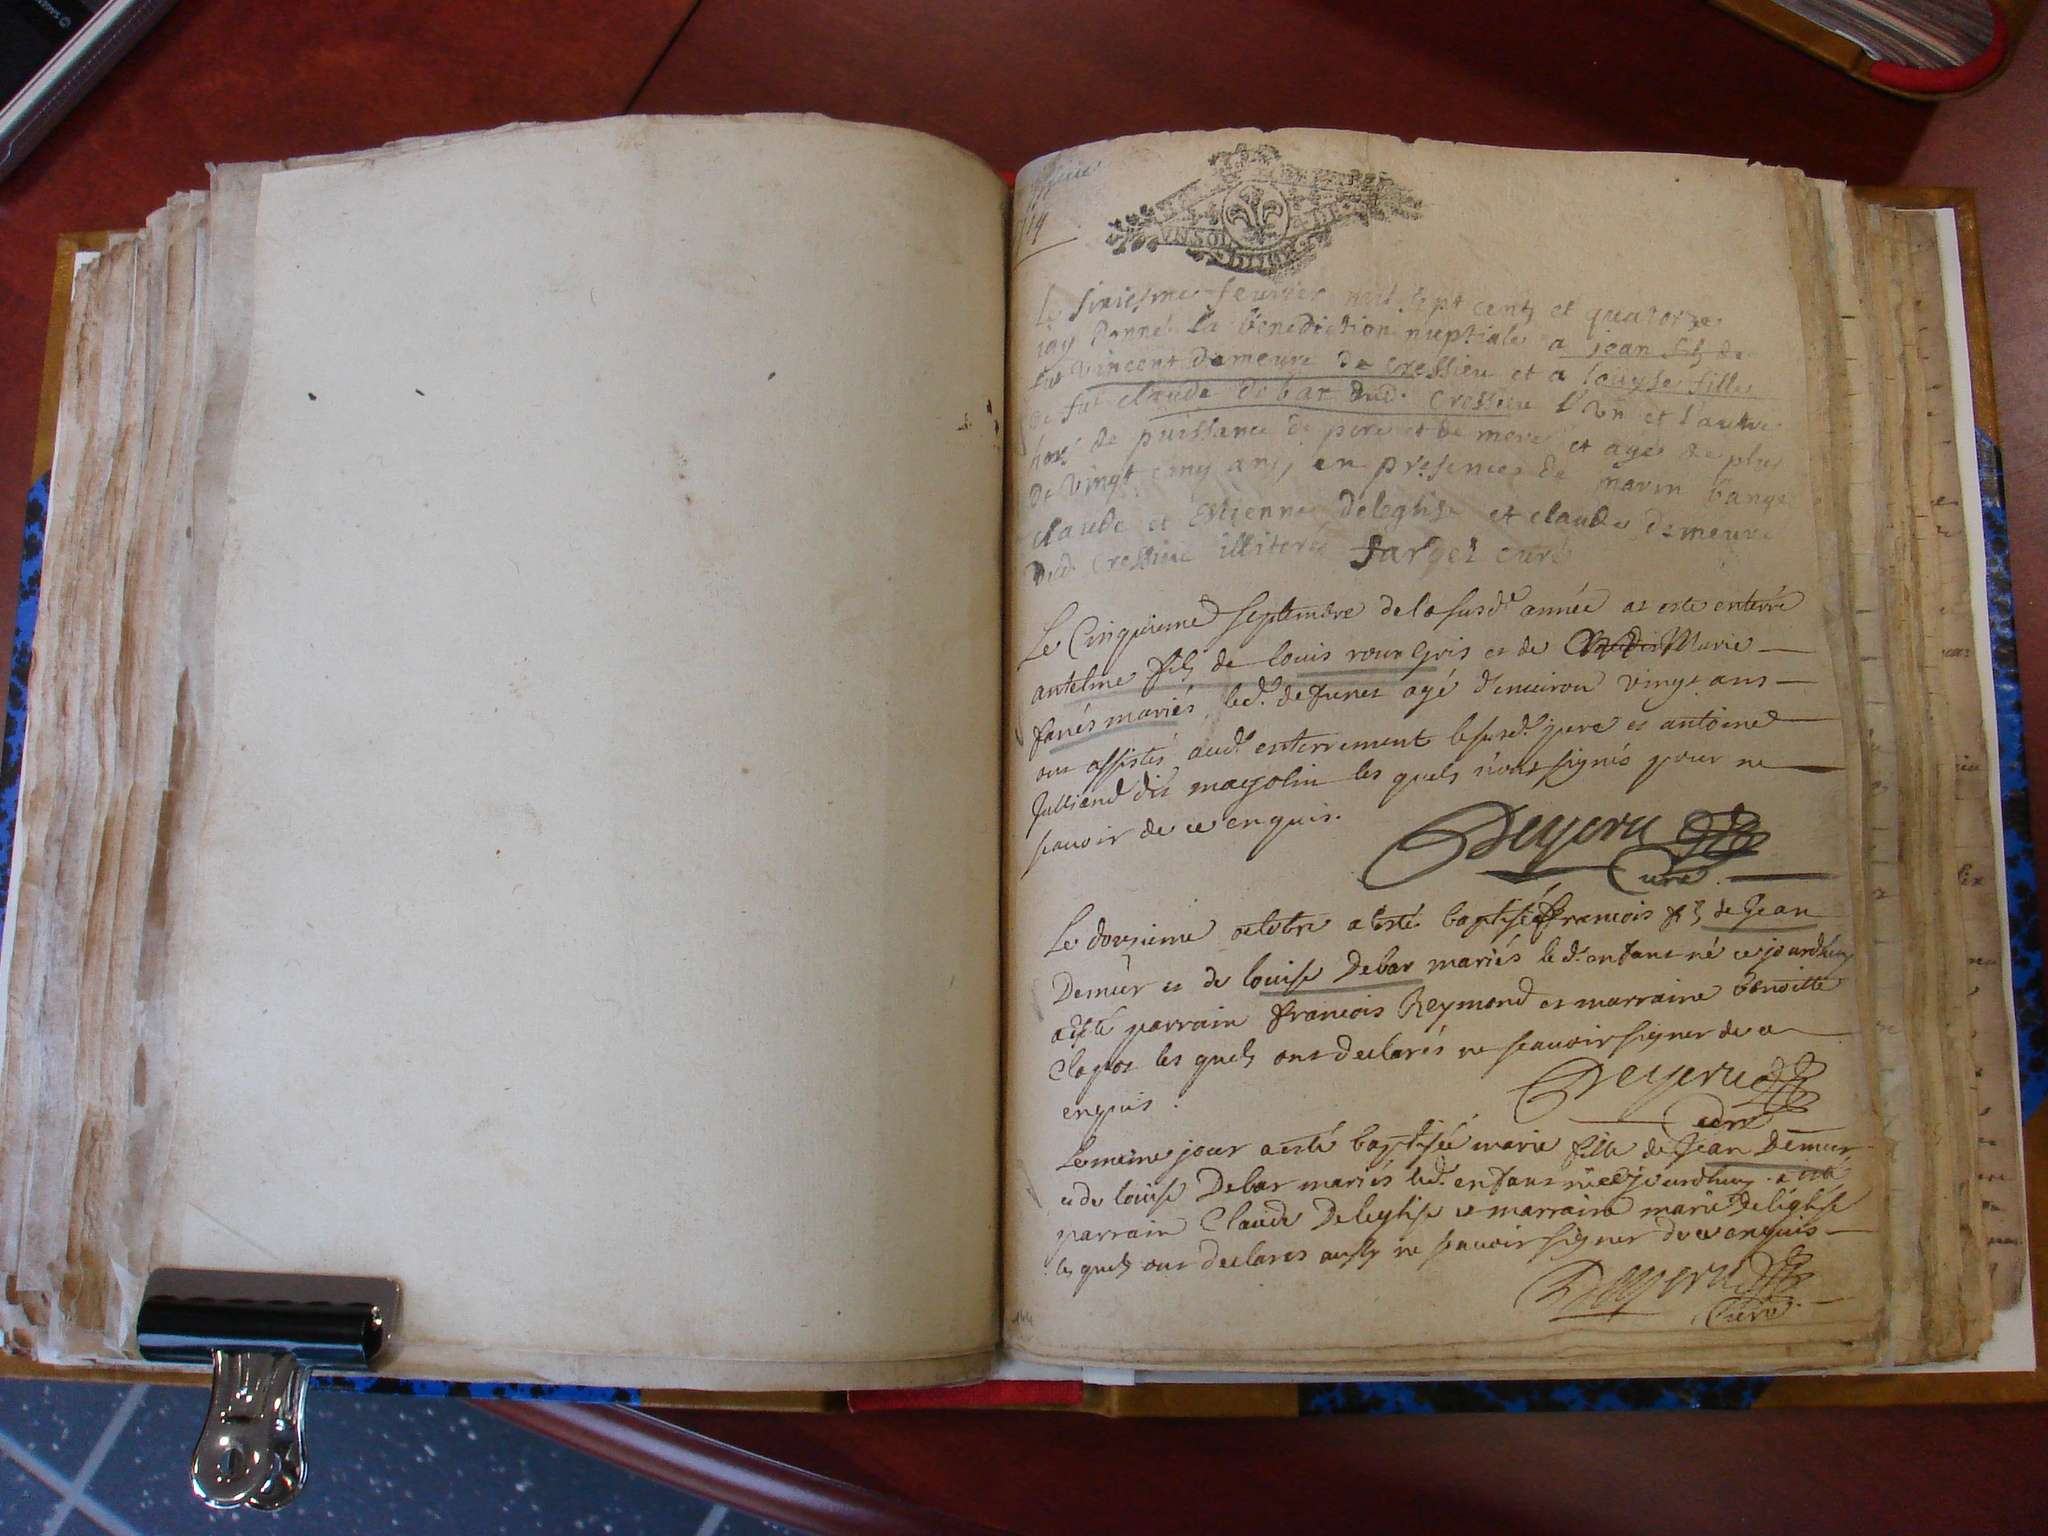 UN SOL
Le sixiesme feurier mil sept cents et quatorze
iay donné la benediction nuptiale a jean fils de
feu Vincent demeure de Cressieu et a louyse fille
de fut claude debar dud. Cressieu l'un et l'autre
hors de puissance de pere et de mere et ages de plus
de vingt cinq ans, en presence de marin
claude et Estienne deleglise et claude demeure
dud Cressieu illiterés farget curé
Le Cinquieme Septembre de la susd.e année at esté enterré
antelme fils de louis roux gris et de Marie
fanés mariés, led. defunct agé d'enuiron vingt ans
ont assistés aud. enterrement le susd. pere et antoine
Julliand dit mayolin les quels n'ont signés pour ne
scauoir de ce enquis.
Deyeru
Curé
Le douzieme octobre a esté baptisé francois fils de Jean
Demeur et de louise Debar mariés led. enfant né ce jourdhuy
a esté parrain francois Reymond et marraine benoitte
Clapot les quels ont declarés ne scauoir signer de ce
enquis.
Deyeru
Curé
Le meine jour a esté baptisée marie fille de Jean Demeur
et de louise Debar mariés led. enfant née ce jourdhuy a esté
parrain Claude Deleglise et marraine marie deleglise
les quels ont declarés aussy ne scauoir signer de ce enquis
Deyeru
Curé